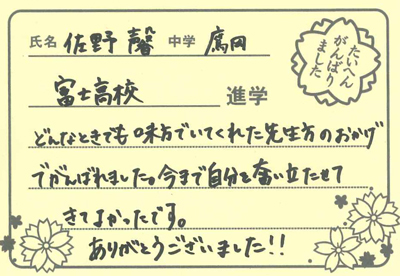 氏名 佐野 馨 中学 鷹岡
たいへん
がんばり
ました
富士高校 進学
どんなときでも味方でいてくれた先生方のおかげ
でがんばれました。今まで自分を奮い立たせて
きてよかったです。
ありがとうございました!!